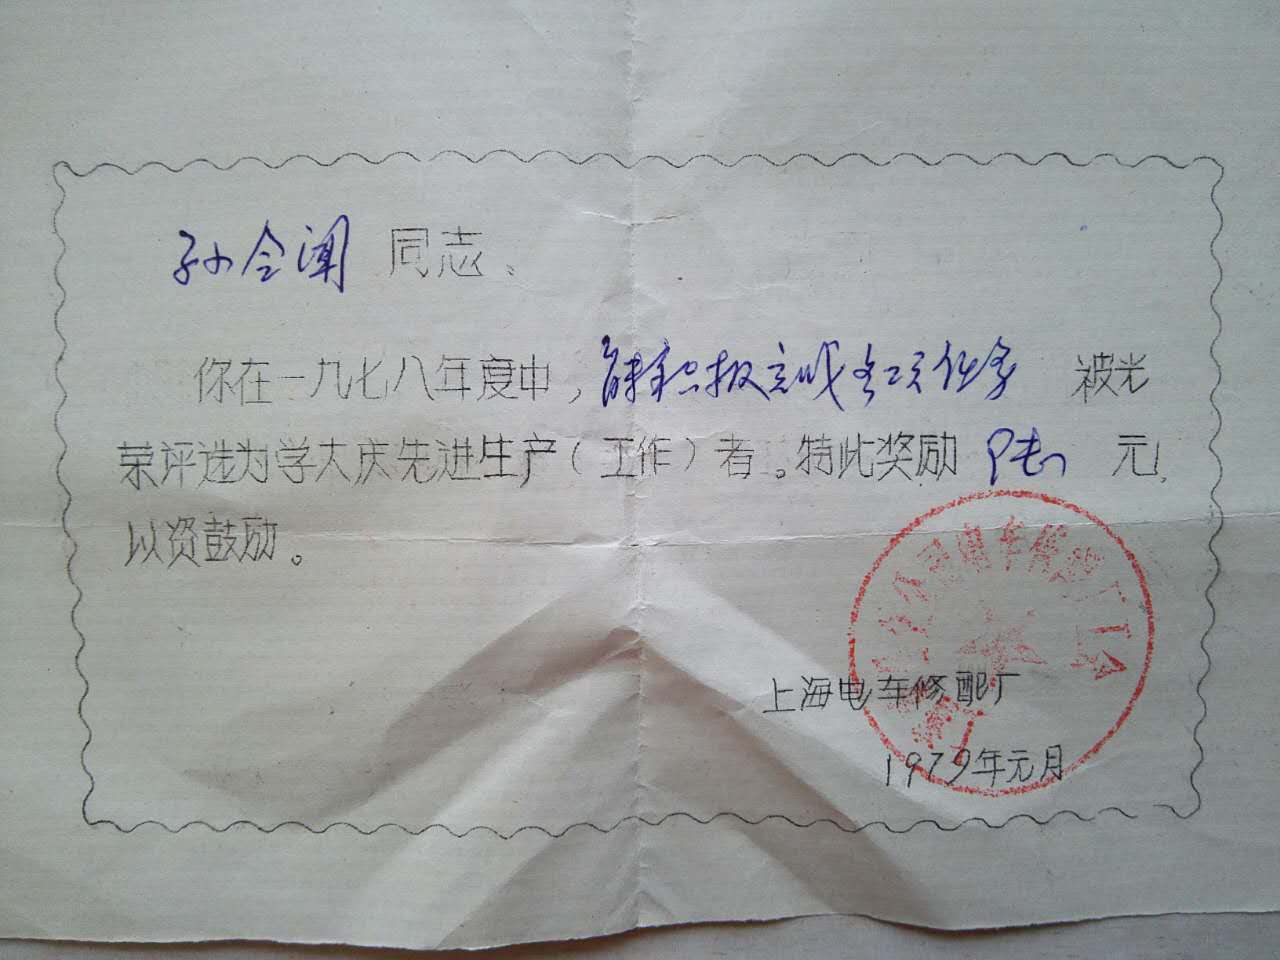 孙令闻 同志、
你在一九七八年度中，能积极完成各项任务 被光
荣评选为学大庆先进生产（工作）者。特此奖励 陆 元，
以资鼓励。
上海电车修配厂
1979年元月